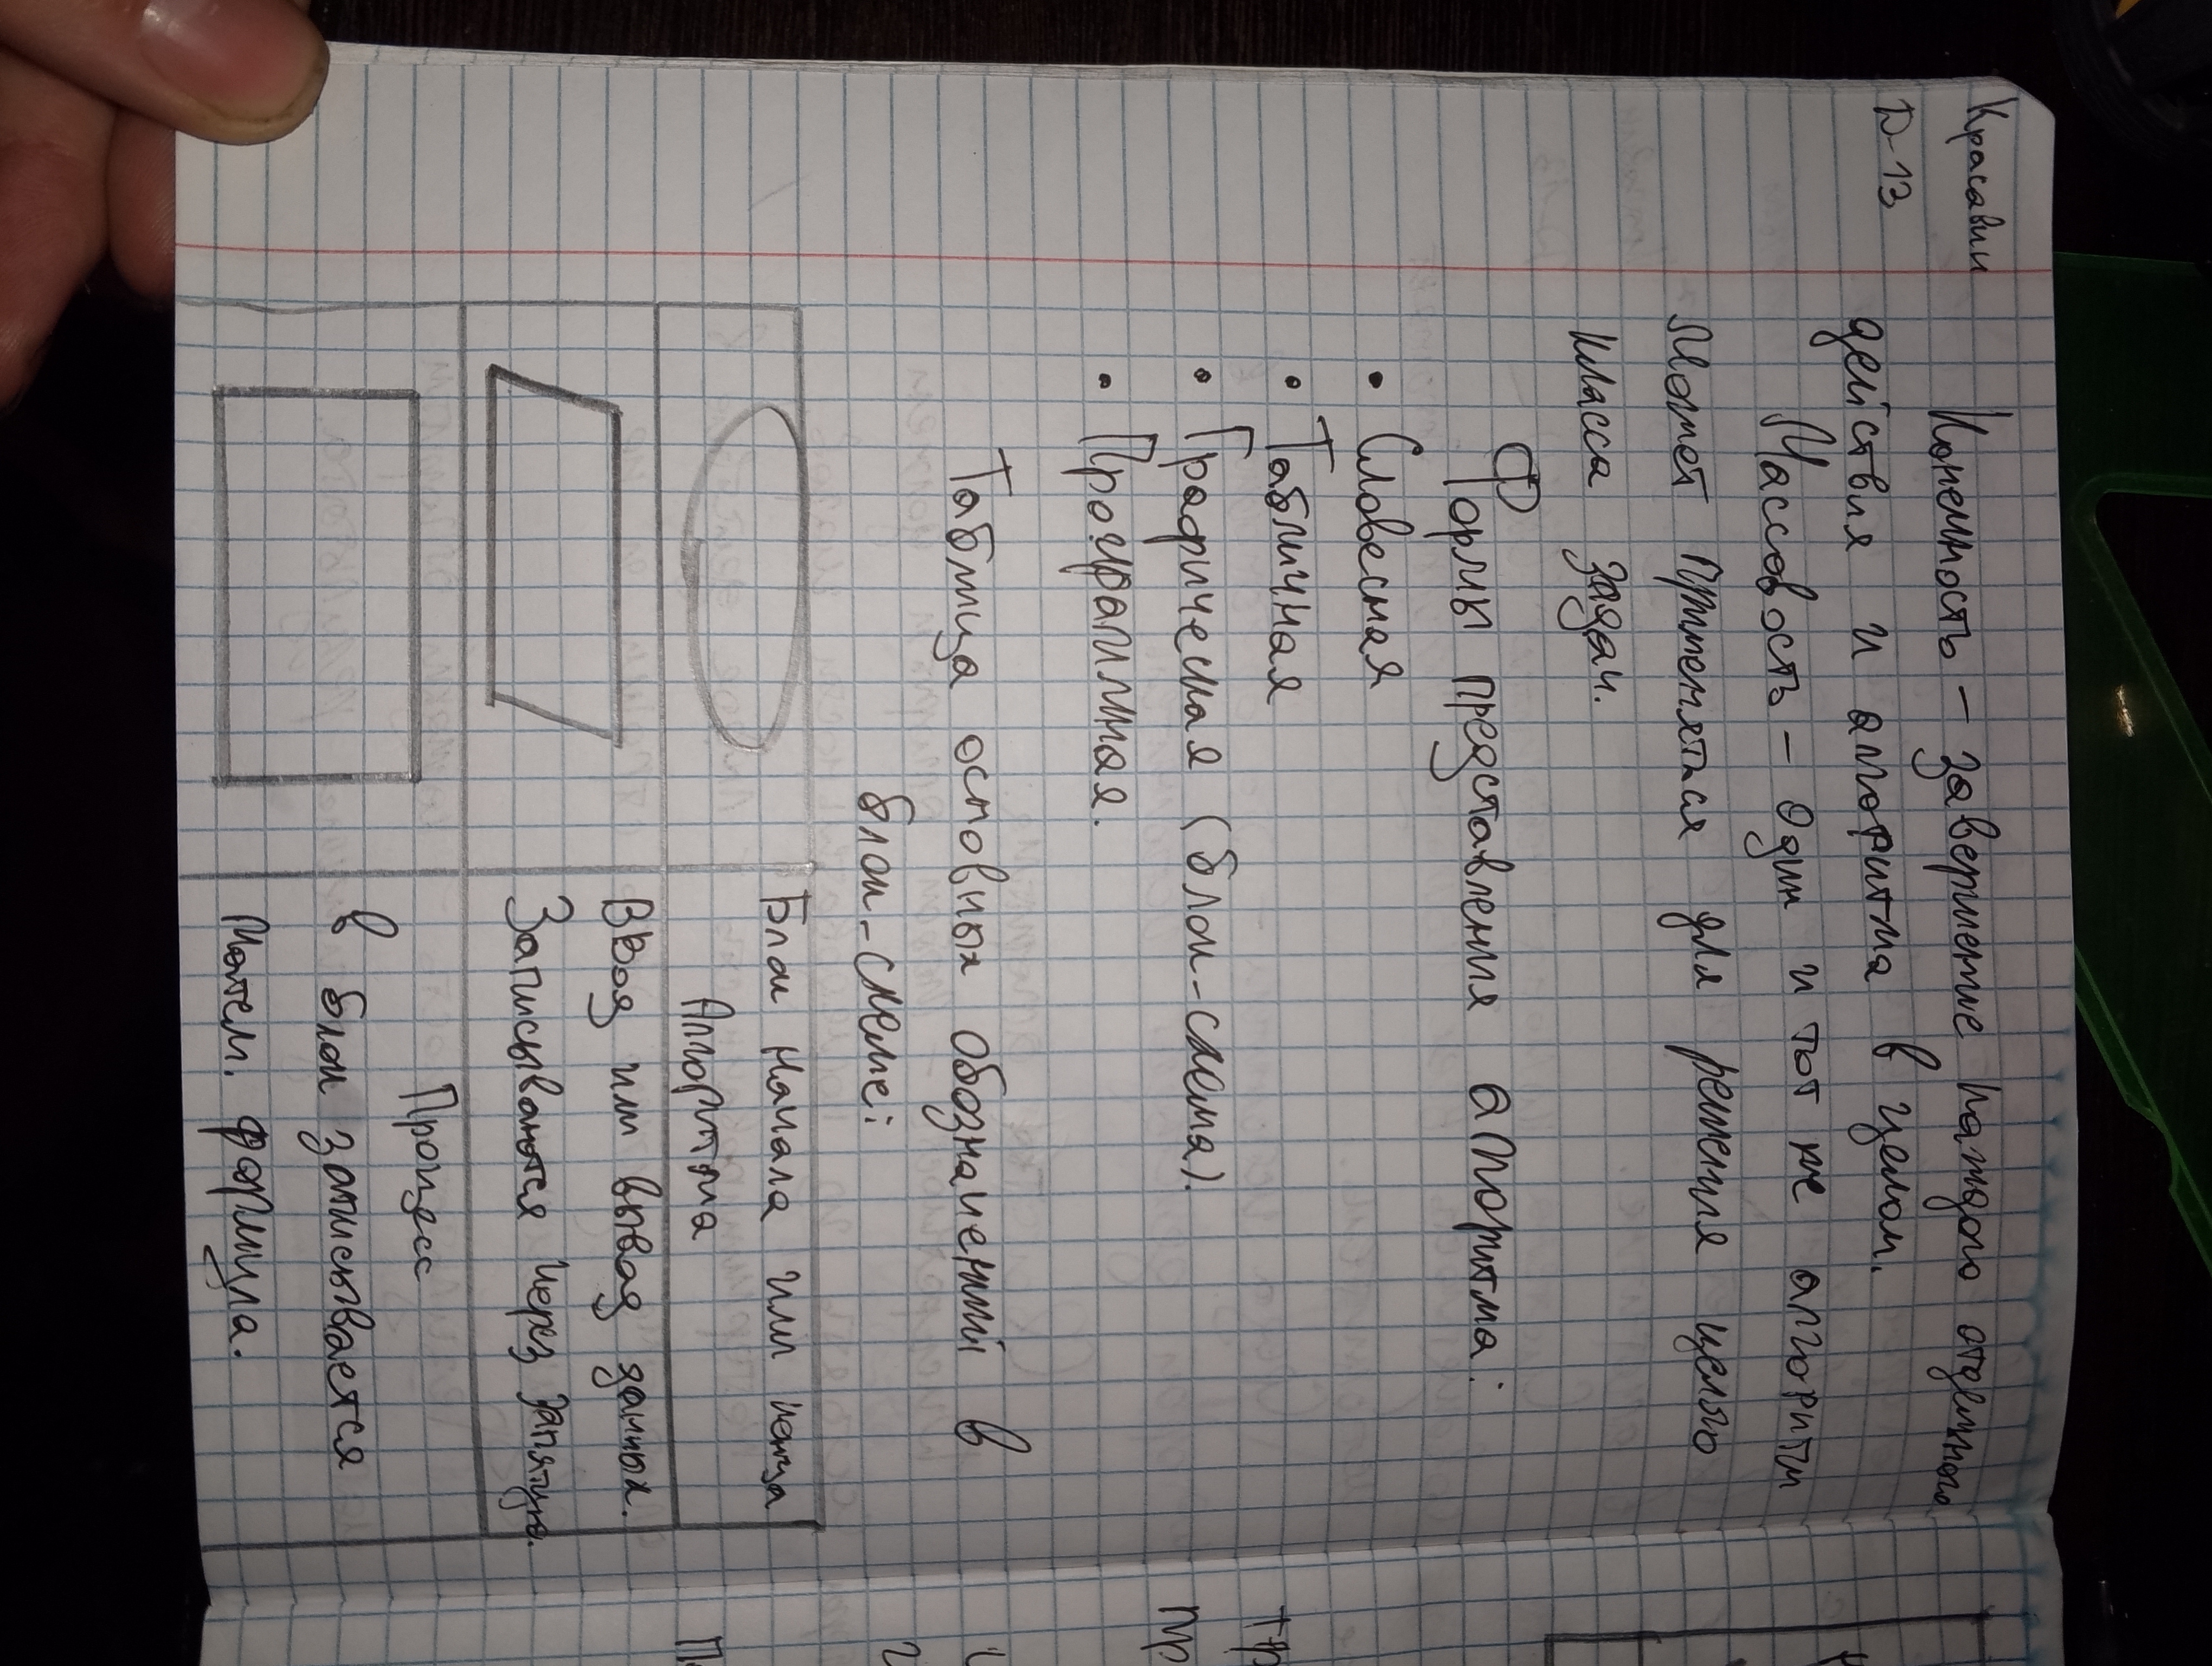 Красавин
D-13
Конечность – завершение каждого отдельного
действия и алгоритма в целом.
Массовость – один и тот же алгоритм
может применятся для решения целого
класса задач.
Формы представления алгоритма:
• Словесная
• Табличная
• Графическая (блок-схема).
• Программная.
Таблица основных обозначений в
блок-схеме:
Блок начала или конца
Алгоритма
Ввод или вывод данных.
Записываются через запятую.
Процесс
в блок записывается
матем. формула.